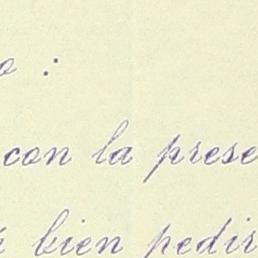 o :
con la prese
á bien pedir